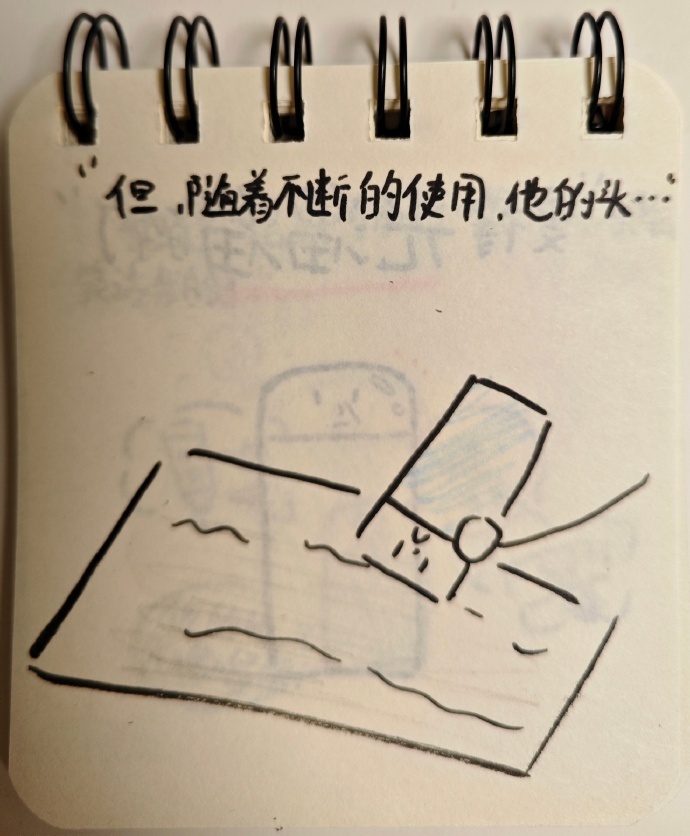 "但,随着不断的使用,他的头…"